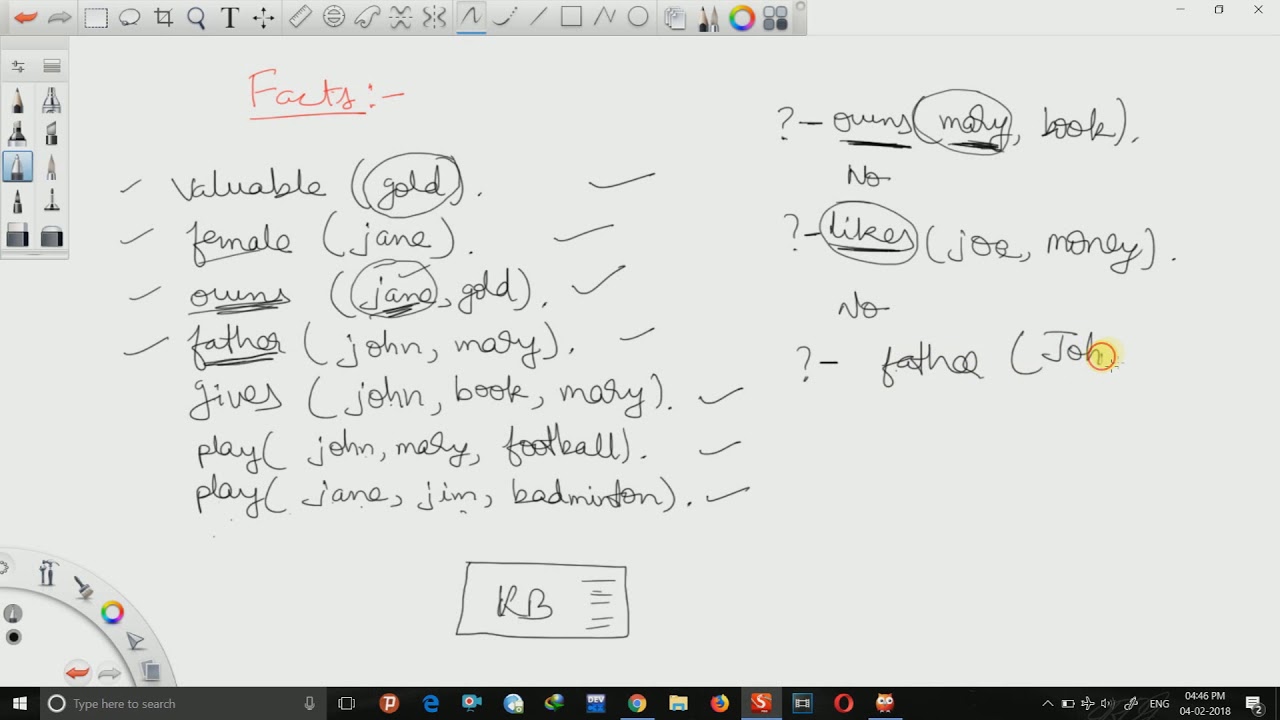 Facts:-
valuable (gold).
female (jane).
owns (jane, gold).
father (john, mary).
gives (john, book, mary).
play( john, mary, football).
play( jane, jim, badminton).
KB
?- owns (mary, book).
No
?- likes (joe, money).
No
?- father (Joh
Type here to search
DEV
ENG
04:46 PM
04-02-2018
2